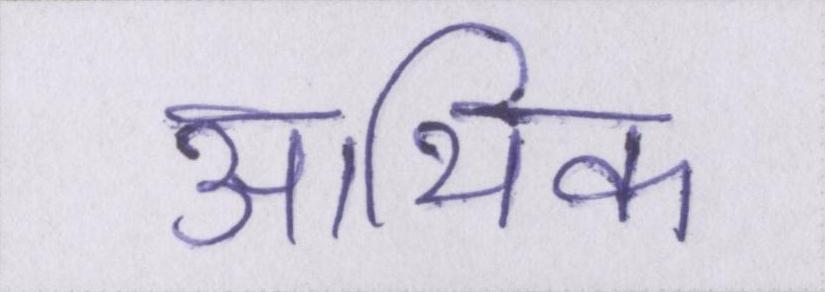 आर्थिक